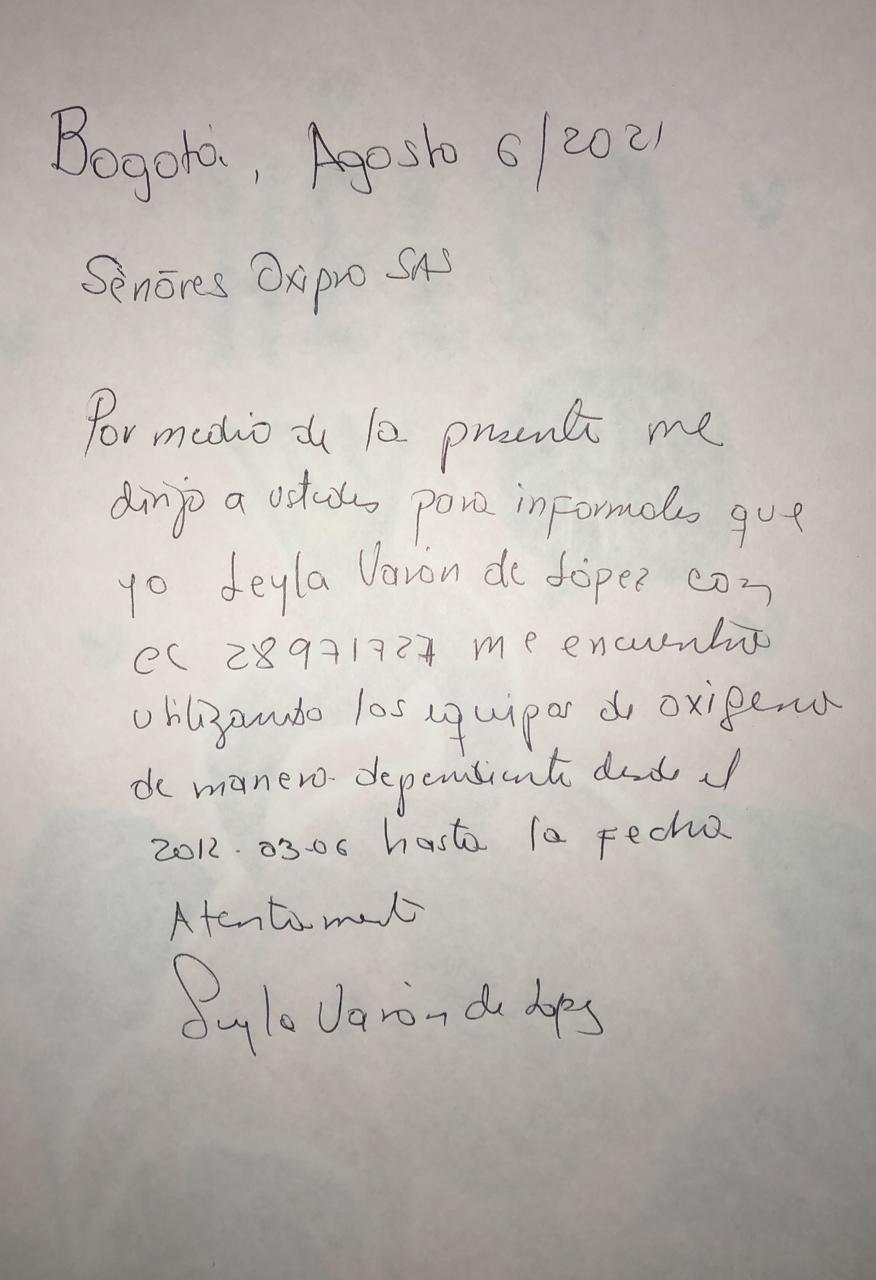 Bogotá, Agosto 6/2021
Señores Oxipro SAS
Por medio de la presente me
dirijo a ustedes para informales que
yo Leyla Varón de López con
cc 28971727 me encuentro
utilizando los equipos de oxigeno
de manera dependiente desde el
2012.03.06 hasta la fecha
Atentamente
Leyla Varón de Lopez